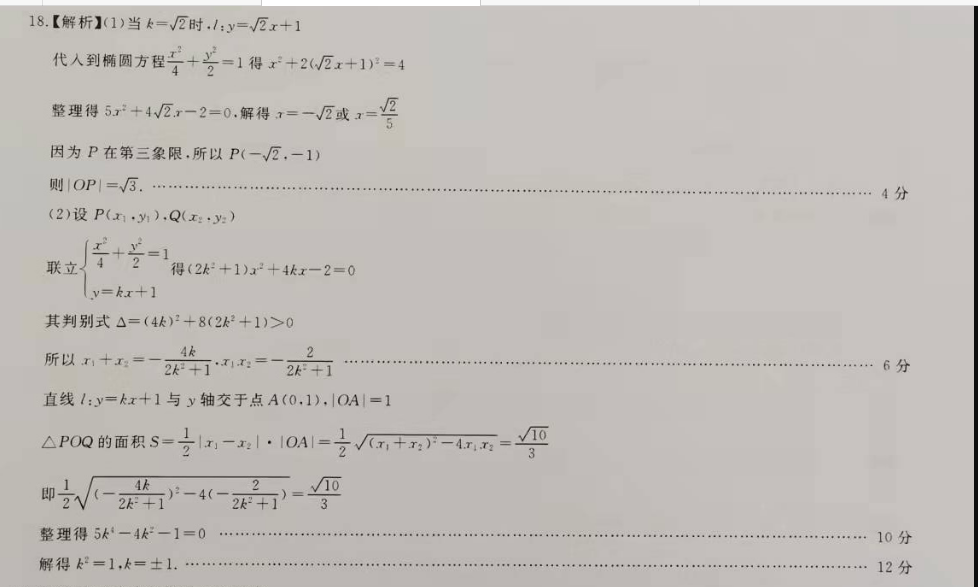 18.【解析】(1)当 k=√2时,l:y=√2x+1
代入到椭圆方程x²/4+y²/2=1得 x²+2(√2x+1)²=4
整理得 5x²+4√2x-2=0,解得 x=-√2或 x=√2/5
因为 P 在第三象限,所以 P(-√2,-1)
则|OP|=√3. ………………………………………… 4 分
(2)设 P(x₁,y₁),Q(x₂,y₂)
联立{x²/4+y²/2=1 y=kx+1 得(2k²+1)x²+4kx-2=0
其判别式 Δ=(4k)²+8(2k²+1)>0
所以 x₁+x₂=-4k/(2k²+1),x₁x₂=-2/(2k²+1) ………………………………………… 6 分
直线 l:y=kx+1 与 y 轴交于点 A(0,1),|OA|=1
△POQ 的面积 S=1/2|x₁-x₂|·|OA|=1/2√((x₁+x₂)²-4x₁x₂)=√10/3
即1/2√((-4k/(2k²+1))²-4(-2/(2k²+1)))=√10/3
整理得 5k⁴-4k²-1=0 ………………………………………… 10 分
解得 k²=1,k=±1. ………………………………………… 12 分